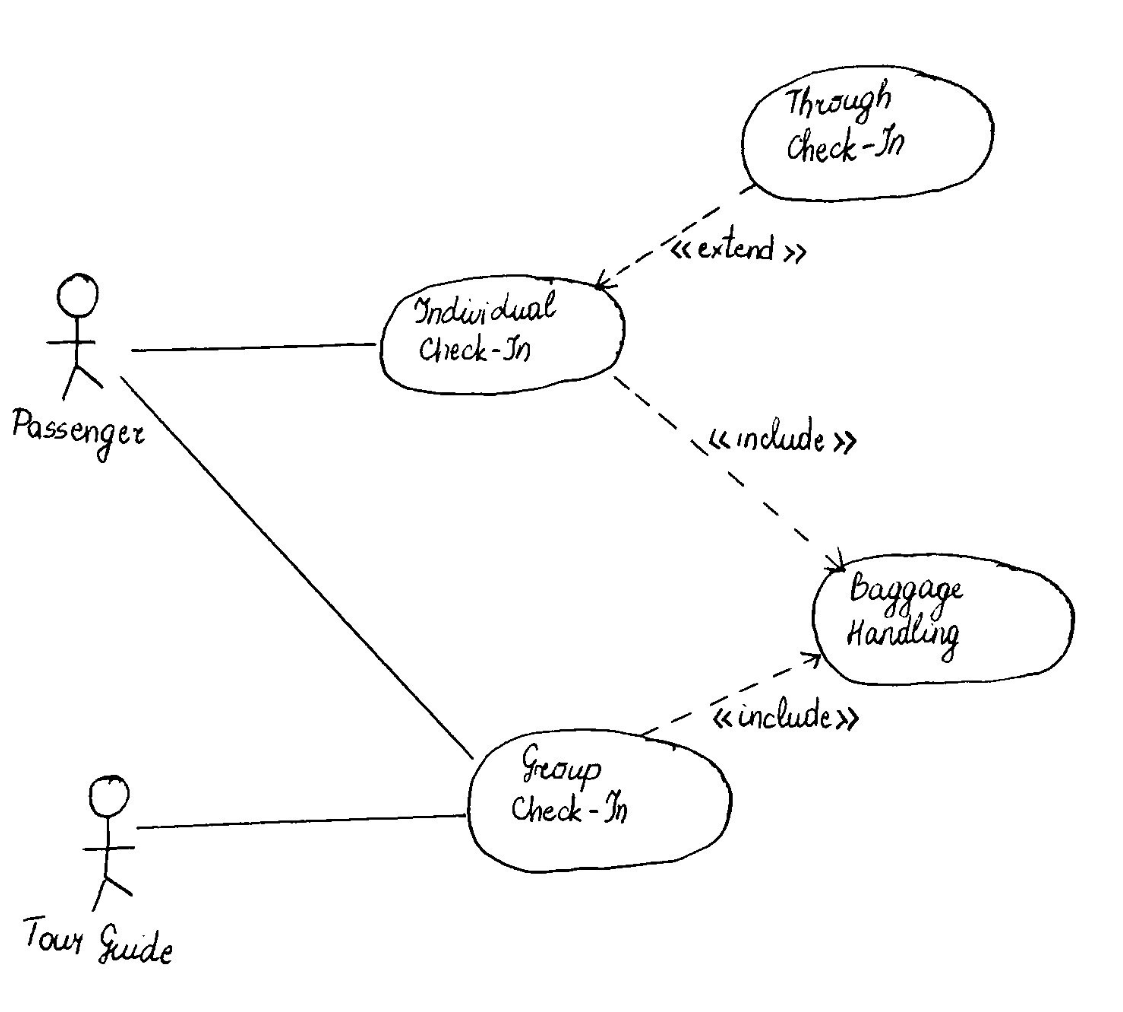 Through
Check-In
«extend»
Individual
Check-In
Passenger
«include»
Baggage
Handling
«include»
Group
Check-In
Tour Guide